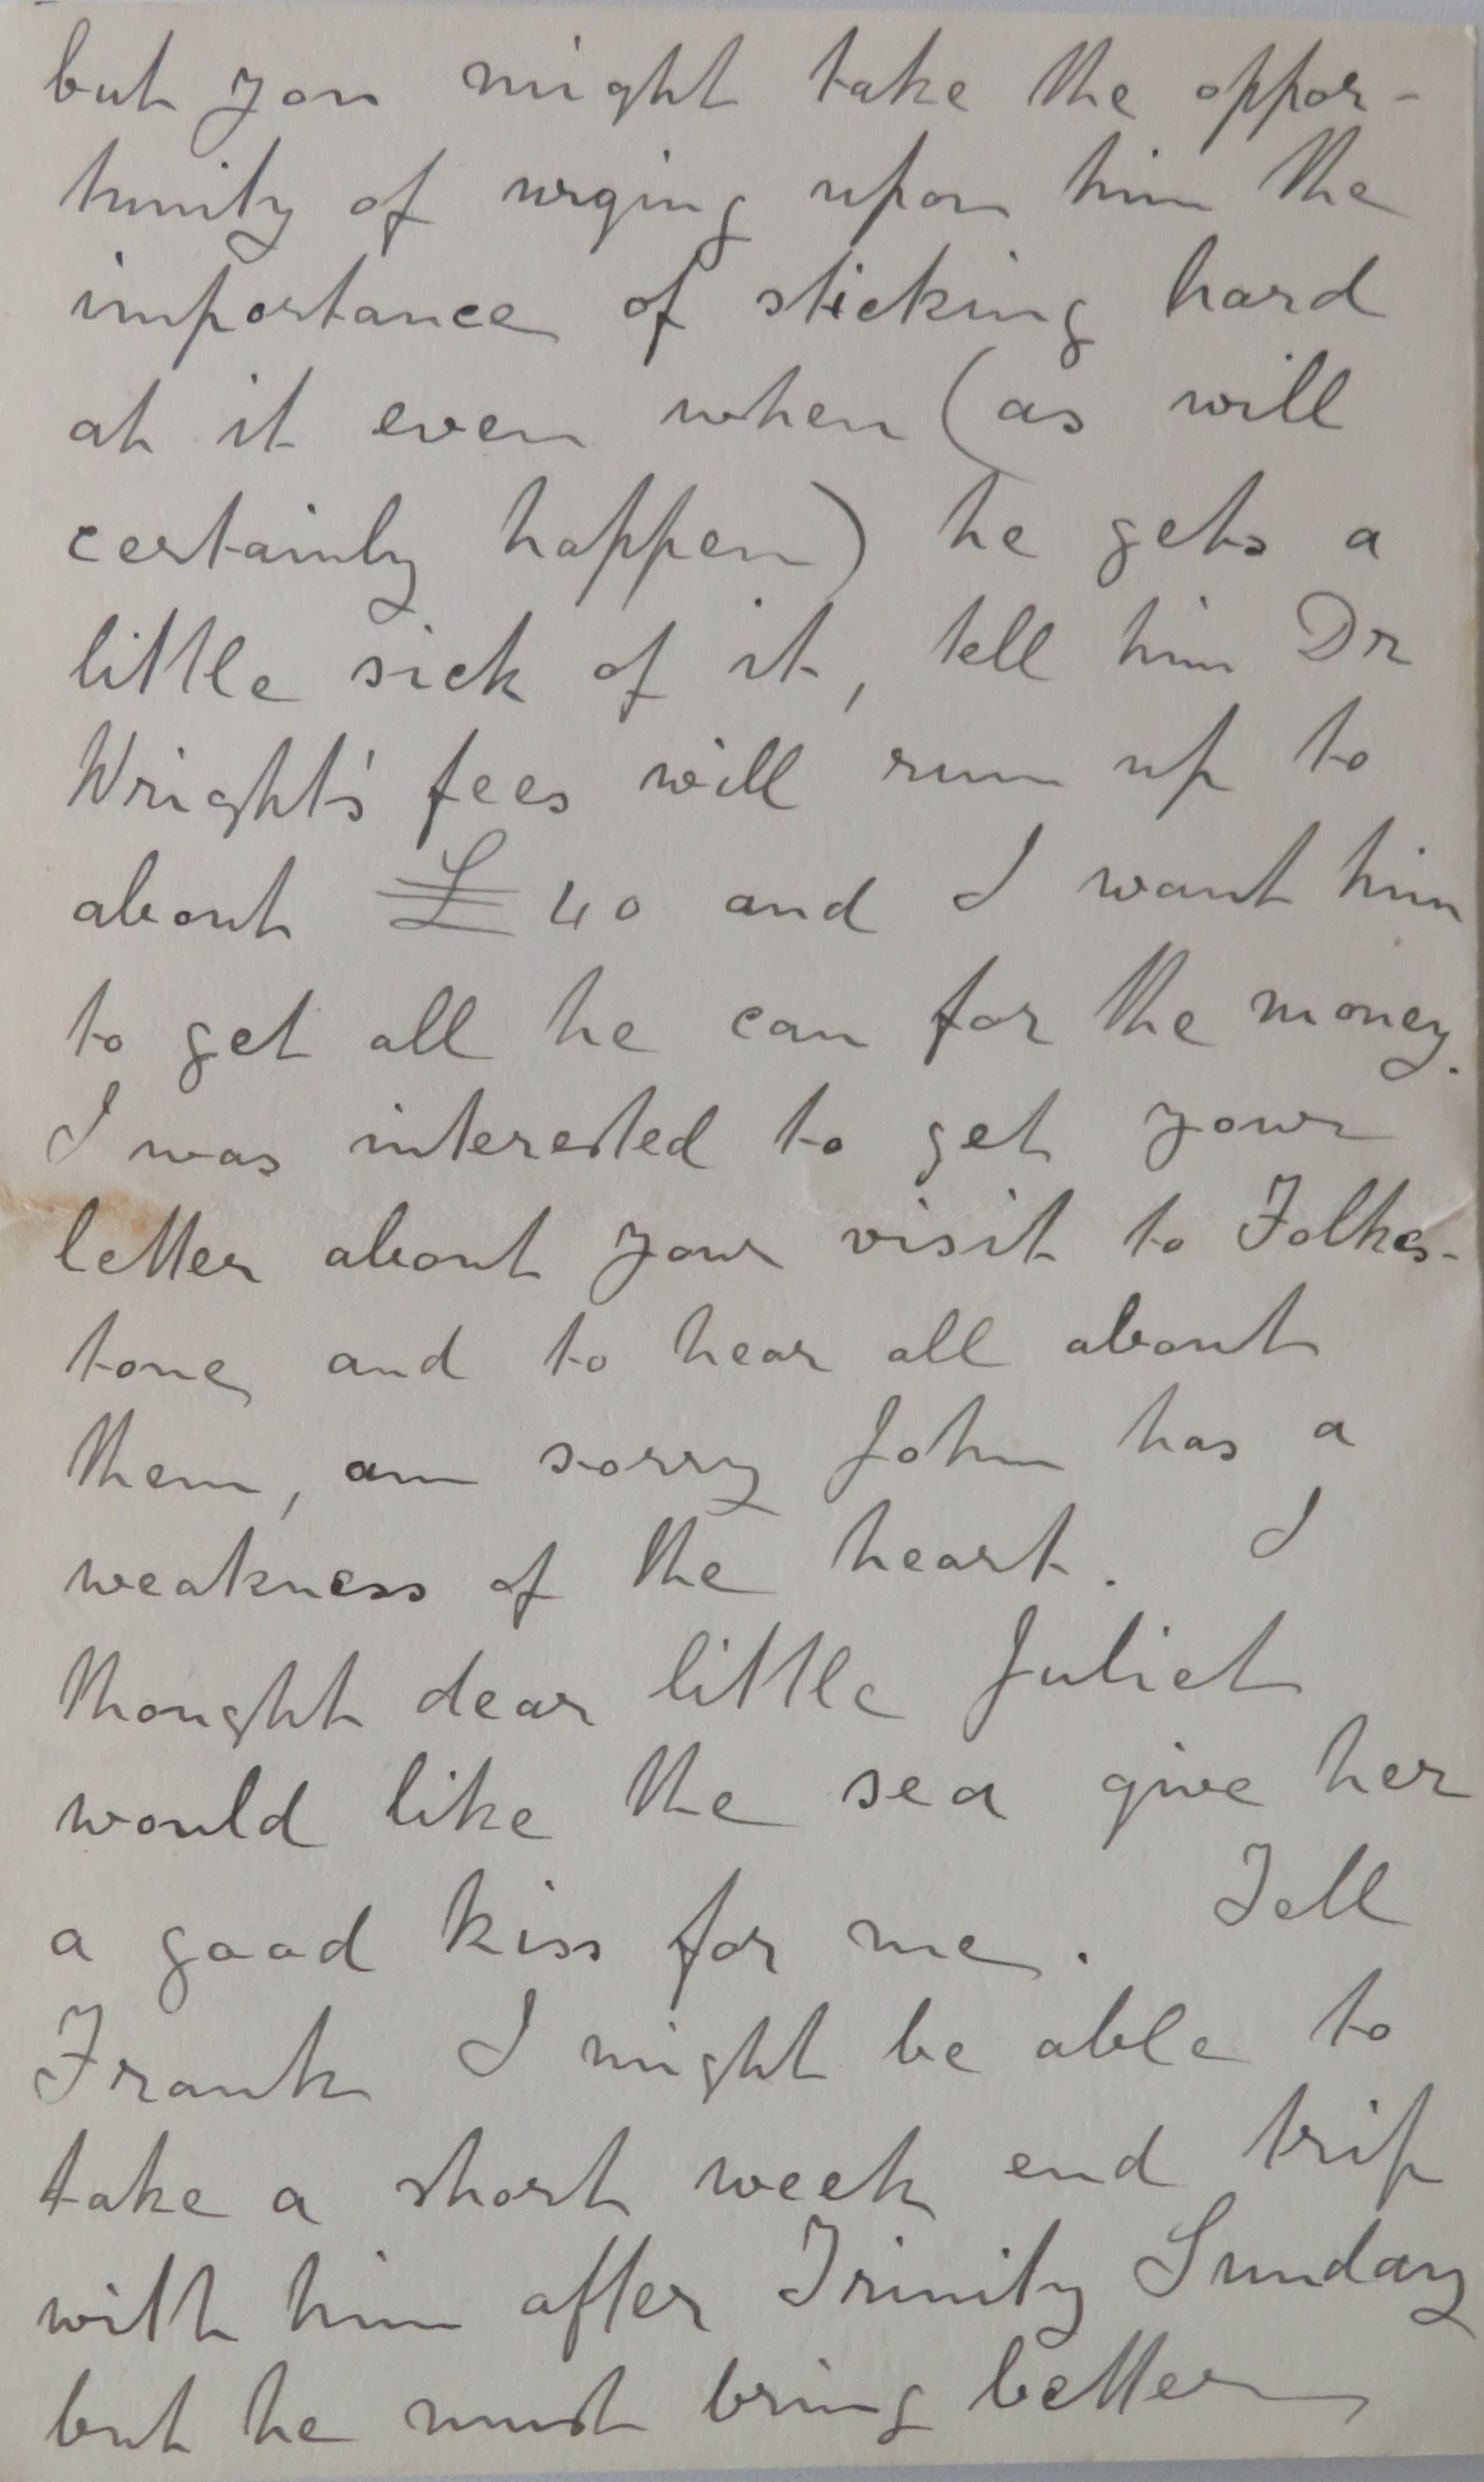 but you might take the oppor-
tunity of urging upon him the
importance of sticking hard
at it even when (as will
certainly happen) he gets a
little sick of it, tell him Dr
Wright's fees will run up to
about £40 and I want him
to get all he can for the money.
I was interested to get your
letter about your visit to Folkes-
tone and to hear all about
them, am sorry John has a
weakness of the heart. I
thought dear little Juliet
would like the sea give her
a good kiss for me. Tell
Frank I might be able to
take a short week end trip
with him after Trinity Sunday
but he must bring better